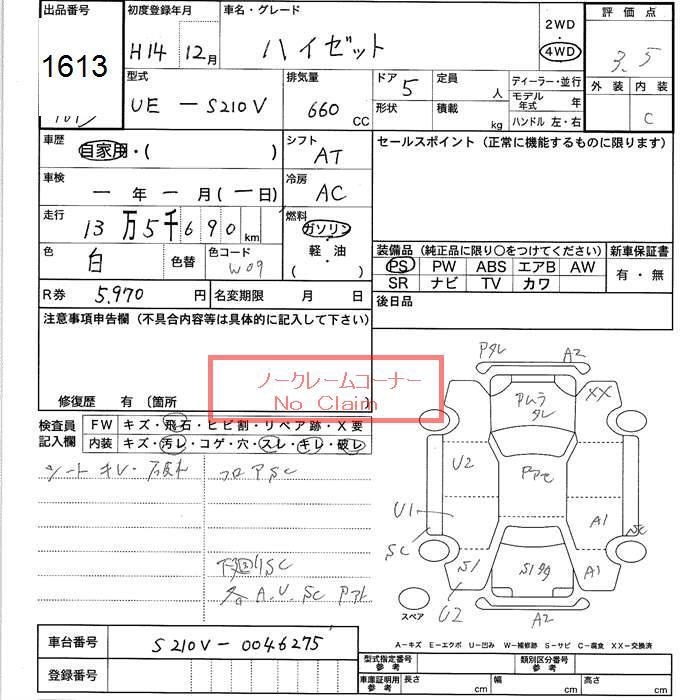 出品番号
1613
初度登録年月
H14 12月
車名・グレード
ハイゼット
2WD
・
4WD
評価点
3.5
外装 内装
C
型式
UE-S210V
排気量
660 CC
ドア 5
定員 人
形状
積載 kg
ディーラー・並行
モデル年式 年
ハンドル 左・右
車歴
自家用・( )
シフト
AT
セールスポイント (正常に機能するものに限ります)
車検
ー年ー月(ー日)
冷房
AC
走行
13万5千690km
燃料
ガソリン
・
軽・油
( )
色
白
色替
色コード
W09
装備品 (純正品に限り〇をつけてください)
PS PW ABS エアB AW
SR ナビ TV カワ
新車保証書
有・無
R券 5,970 円
名変期限 月 日
後日品
注意事項申告欄 (不具合内容等は具体的に記入して下さい)
ノークレームコーナー
No Claim
修復歴 有 〔箇所
検査員
記入欄
FW キズ・飛石・ヒビ割・リペア跡・X要
内装 キズ・汚レ・コゲ・穴・スレ・キレ・破レ
シートキレ・
フロアSC
各A.U.SC
Pタレ A2
XX
U2
U1
A1
SC SC
S1 A1
U2 A2
スペア
A-キズ E-エクボ U-凹み W-補修跡 S-サビ C-腐食 XX-交換済
車台番号 S210V-0046275
登録番号
型式指定番号
参考
類別区分番号
参考
車庫証明用
参考
長さ cm 幅 cm 高さ cm